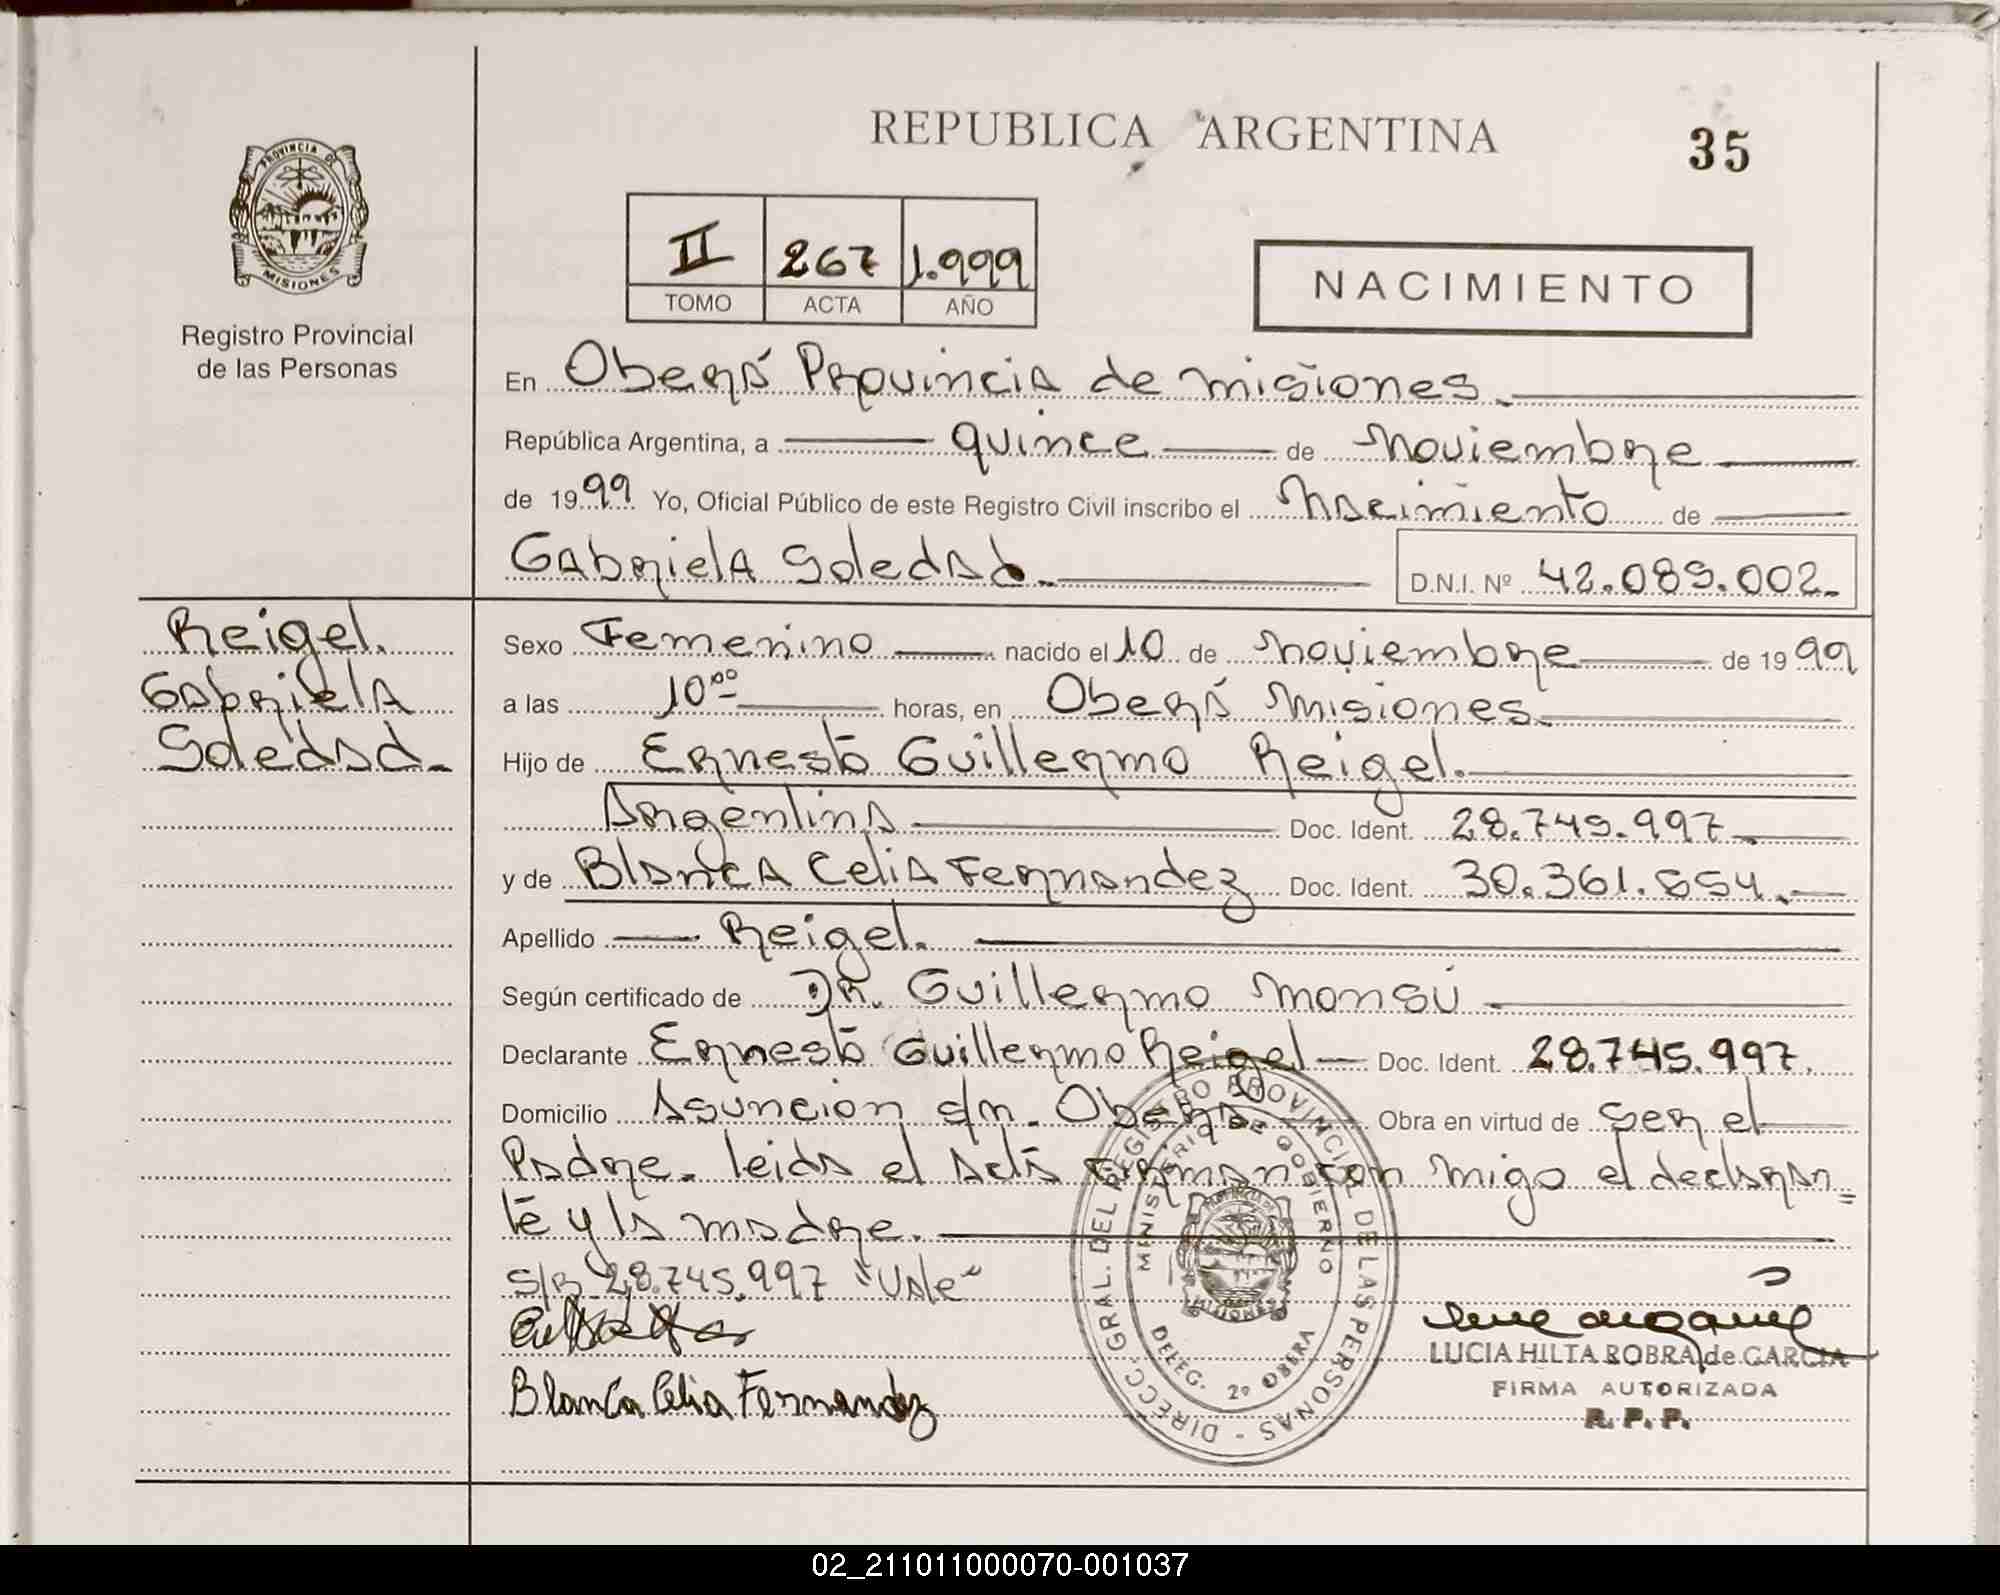 REPUBLICA ARGENTINA
35
PROVINCIA DE
MISIONES
Registro Provincial
de las Personas
II 267 1.999
TOMO ACTA AÑO
NACIMIENTO
En Oberá Provincia de Misiones.
República Argentina, a quince de Noviembre
de 1999 Yo, Oficial Público de este Registro Civil inscribo el Nacimiento de
Gabriela Soledad.
D.N.I. Nº 42.089.002.
Reigel.
Gabriela
Soledad.
Sexo Femenino nacido el 10 de Noviembre de 1999
a las 10ºº horas, en Oberá Misiones.
Hijo de Ernesto Guillermo Reigel.
Argentina Doc. Ident. 28.745.997.
y de Blanca Celia Fernandez Doc. Ident. 30.361.854.
Apellido Reigel.
Según certificado de DR. Guillermo Monsú
Declarante Ernesto Guillermo Reigel Doc. Ident. 28.745.997.
Domicilio Asuncion s/n. Oberá. Obra en virtud de ser el
Padre. leida el acta firman con migo el declaran=
te y la madre.
S/R 28.745.997 "Vale"
Blanca Celia Fernandez
DIRECC. GRAL. DEL REGISTRO PROVINCIAL DE LAS PERSONAS -
MINISTERIO DE GOBIERNO
PROVINCIA DE
MISIONES
DELEG. 2º OBERA
LUCIA HILTA ROBRA de GARCIA
FIRMA AUTORIZADA
R. P. P.
02_211011000070-001037